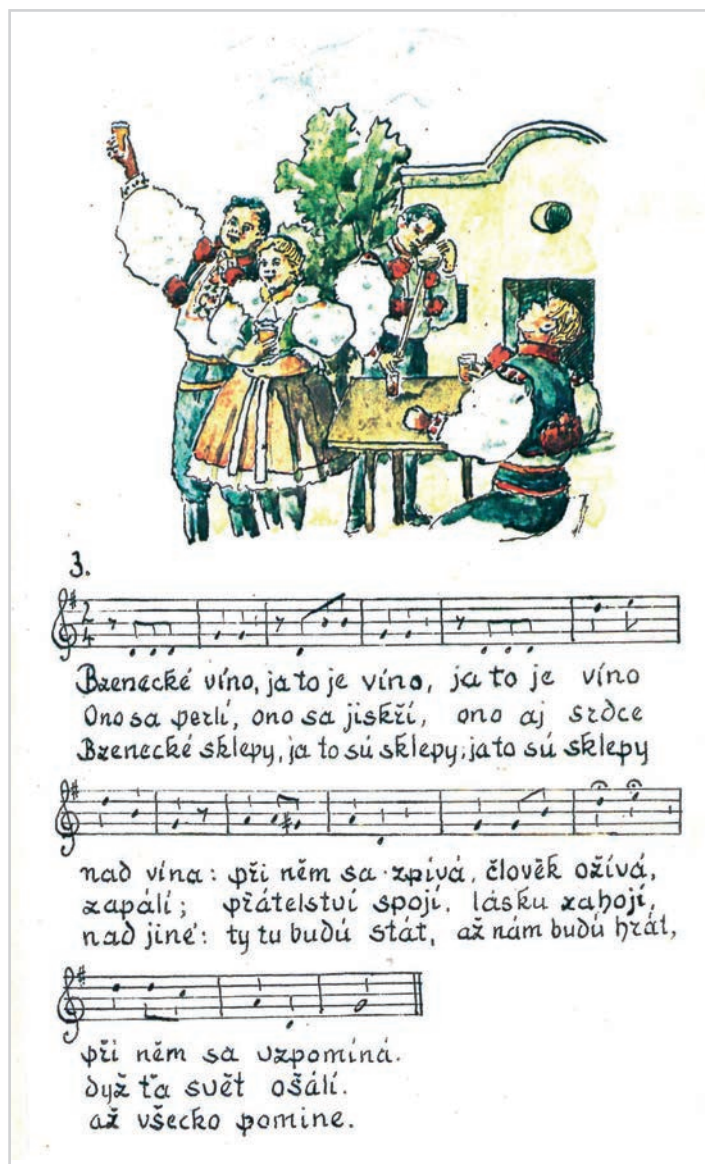 3.
2
4
Bzenecké víno, ja to je víno, ja to je víno
Ono sa perlí, ono sa jiskří, ono aj srdce
Bzenecké sklepy, ja to sú sklepy, ja to sú sklepy
nad vína: při něm sa zpívá, člověk ožívá,
zapálí; přátelství spojí, lásku zahojí,
nad jiné: ty tu budú stát, až nám budú hrát,
při něm sa vzpomíná.
dyž ťa svět ošálí.
až všecko pomine.